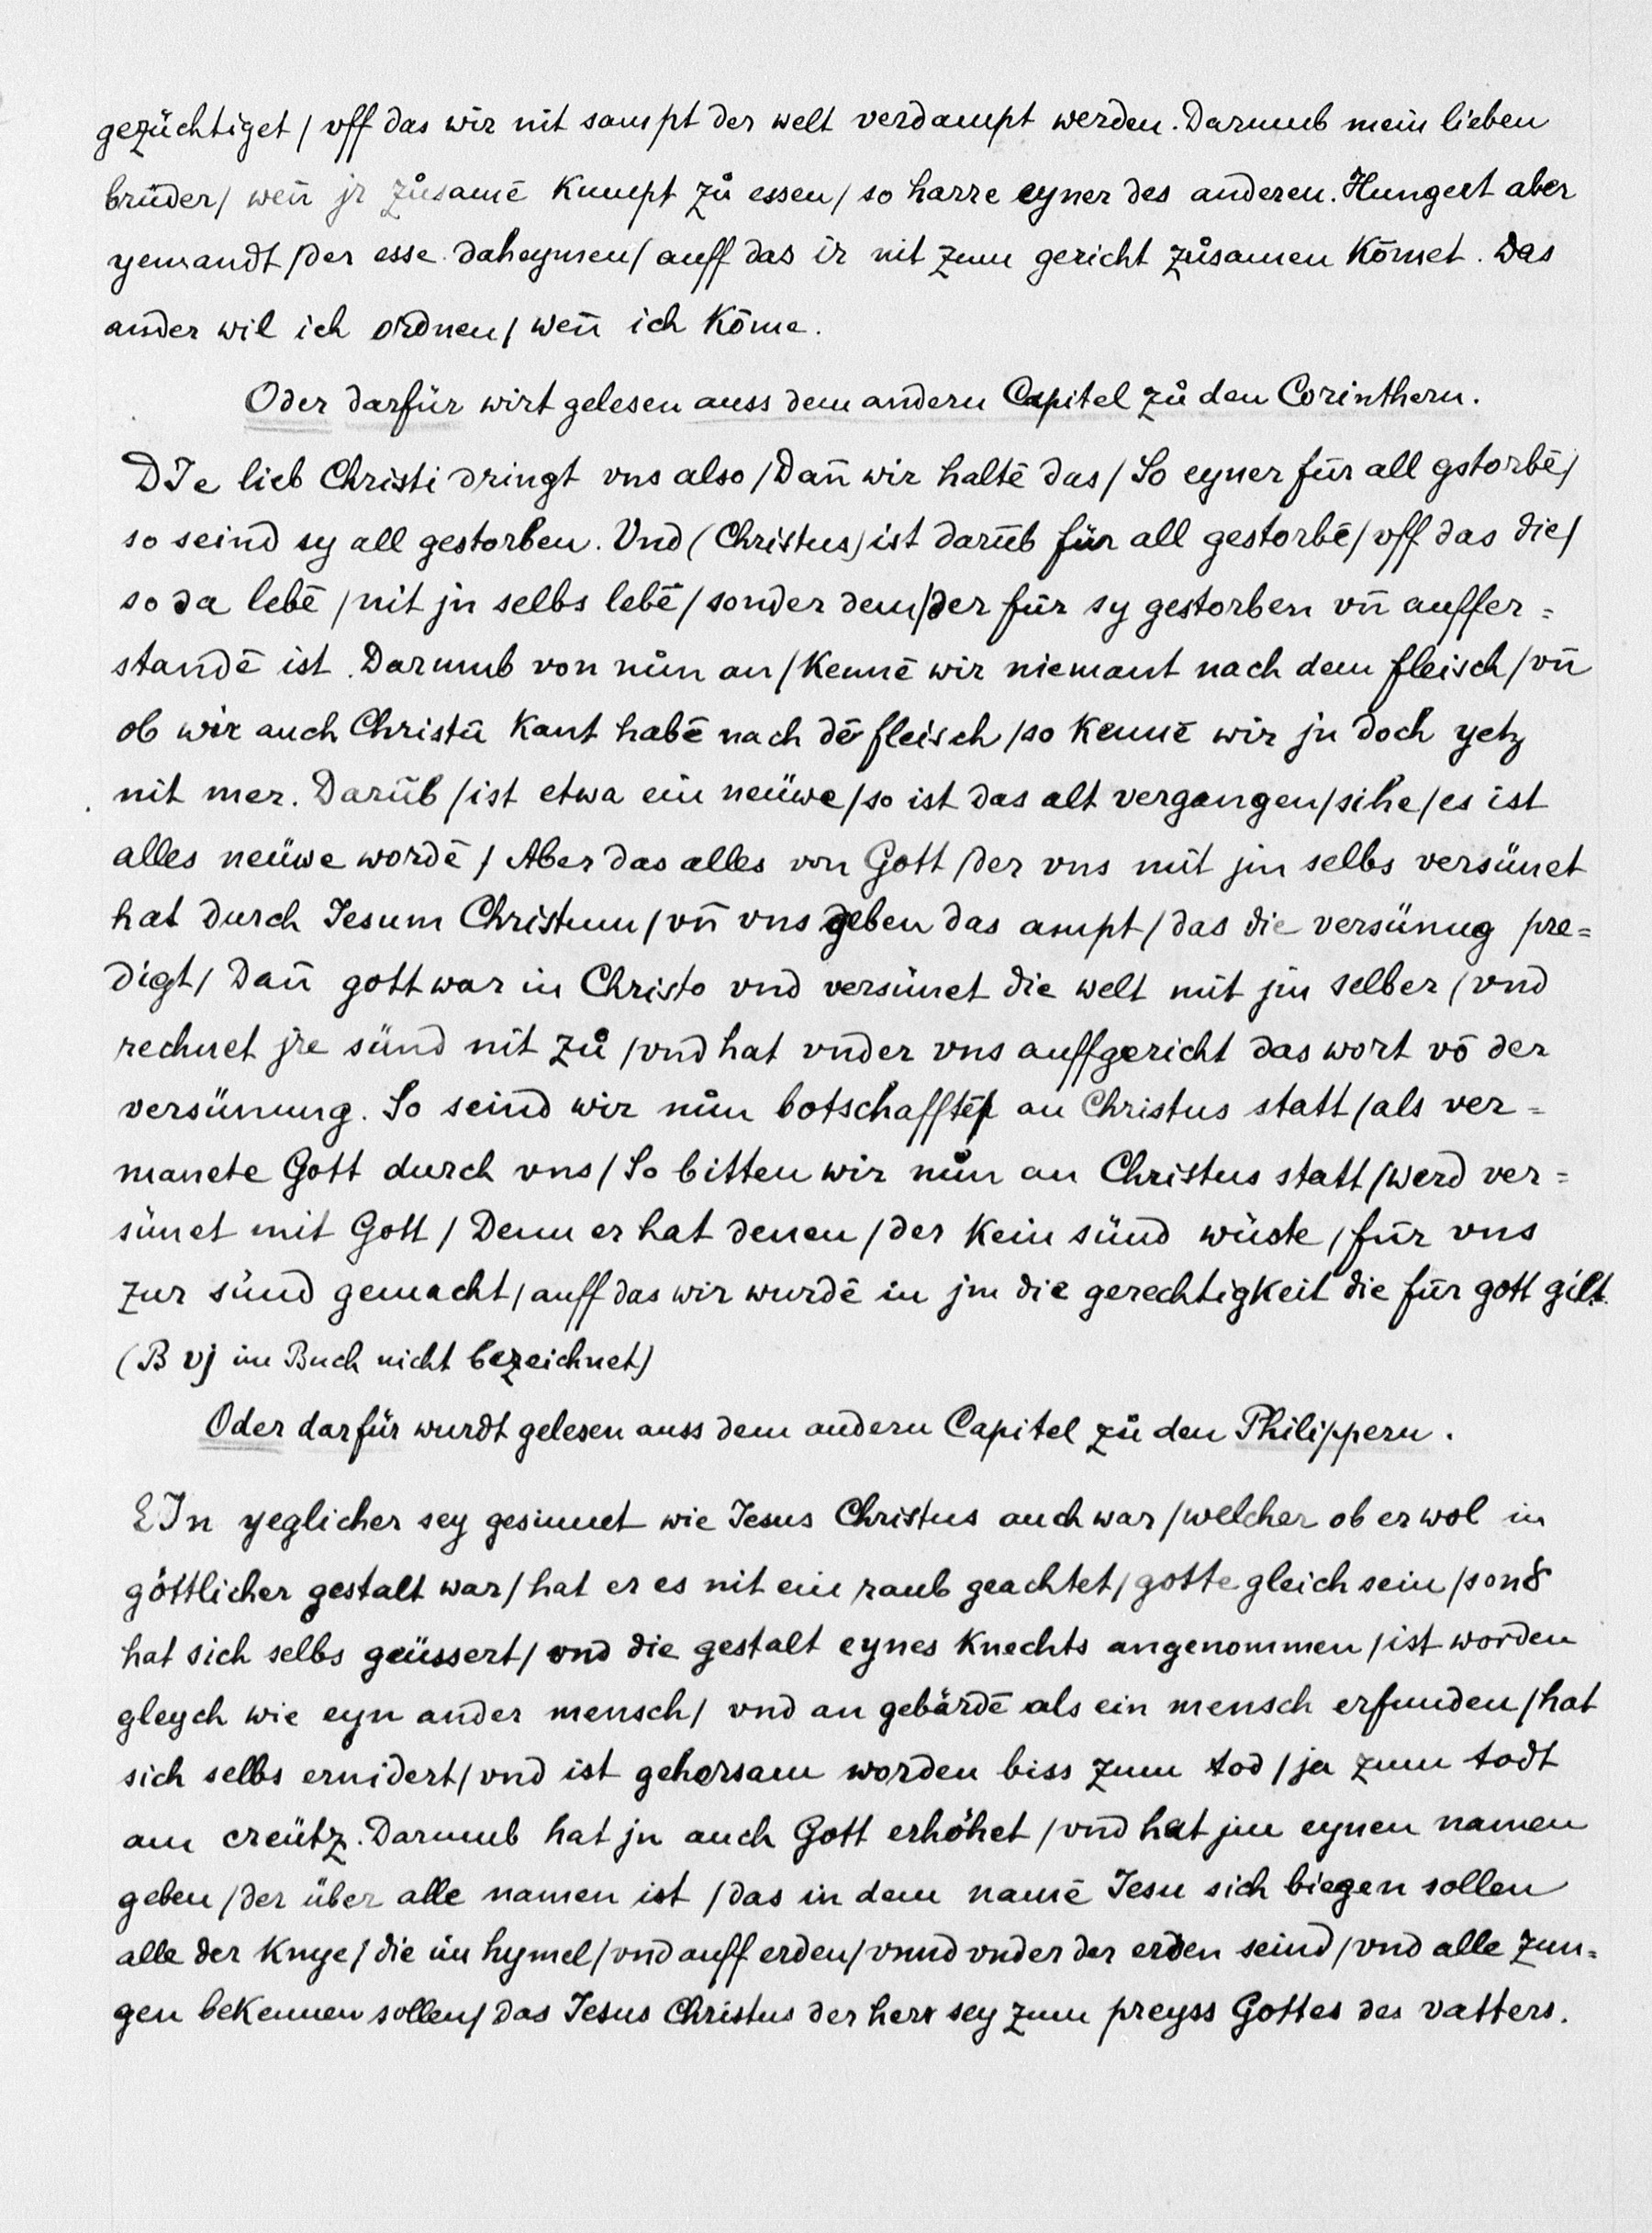 gezüchtiget / vff das wir nit sampt der welt verdampt werden. Darumb mein lieben
brüder / weñ jr zůsamē kumpt zů essen / so harre eyner des anderen. Hungert aber
yemandt / der esse daheymen / auff das ir nit zum gericht zůsamen kōmet. Das
ander wil ich ordnen / weñ ich kōme.
Oder darfür wirt gelesen auss dem andern Capitel zů den Corinthern.
DIe lieb Christi dringt vns also / Dañ wir haltē das / So eyner für all gstorbē /
so seind sy all gestorben. Vnd (Christus) ist darūb für all gestorbē / vff das die /
so da lebē / nit jn selbs lebē / sonder dem / der für sy gestorben vñ auffer=
standē ist. Darumb von nůn an / kennē wir niemant nach dem fleisch / vñ
ob wir auch Christū kant habē nach dē fleisch / so kennē wir jn doch yetz
nit mer. Darūb / ist etwa ein neüwe / so ist das alt vergangen / sihe / es ist
alles neüwe wordē / Aber das alles von Gott / der vns mit jm selbs versünet
hat durch Jesum Christum / vñ vns geben das ampt / das die versünug pre=
digt / Dañ gott war in Christo vnd versünet die welt mit jm selber / vnd
rechnet jre sünd nit zů / vnd hat vnder vns auffgericht das wort vō der
versünung. So seind wir nůn botschafftē / an Christus statt / als ver=
manete Gott durch vns / So bitten wir nůn an Christus statt / werd ver=
sünet mit Gott / Denn er hat denen / der kein sünd wüste / für vns
zur sünd gemacht / auff das wir wurdē in jm die gerechtigkeit die für gott gilt.
(B vj im Buch nicht bezeichnet)
Oder darfür wurdt gelesen auss dem andern Capitel zů den Philippern.
EIn yeglicher sey gesinnet wie Jesus Christus auch war / welcher ob er wol in
göttlicher gestalt war / hat er es nit ein raub geachtet / gotte gleich sein / sond
hat sich selbs geüssert / vnd die gestalt eynes knechts angenommen / ist worden
gleych wie eyn ander mensch / vnd an gebärdē als ein mensch erfunden / hat
sich selbs ernidert / vnd ist gehorsam worden biss zum tod / ja zum todt
am creütz. Darumb hat jn auch Gott erhöhet / vnd hat jm eynen namen
geben / der über alle namen ist / das in dem namē Jesu sich biegen sollen
alle der knye / die im hymel / vnd auff erden / vnnd vnder der erden seind / vnd alle zun=
gen bekennen sollen / das Jesus Christus der herr sey zum preyss Gottes des vatters.